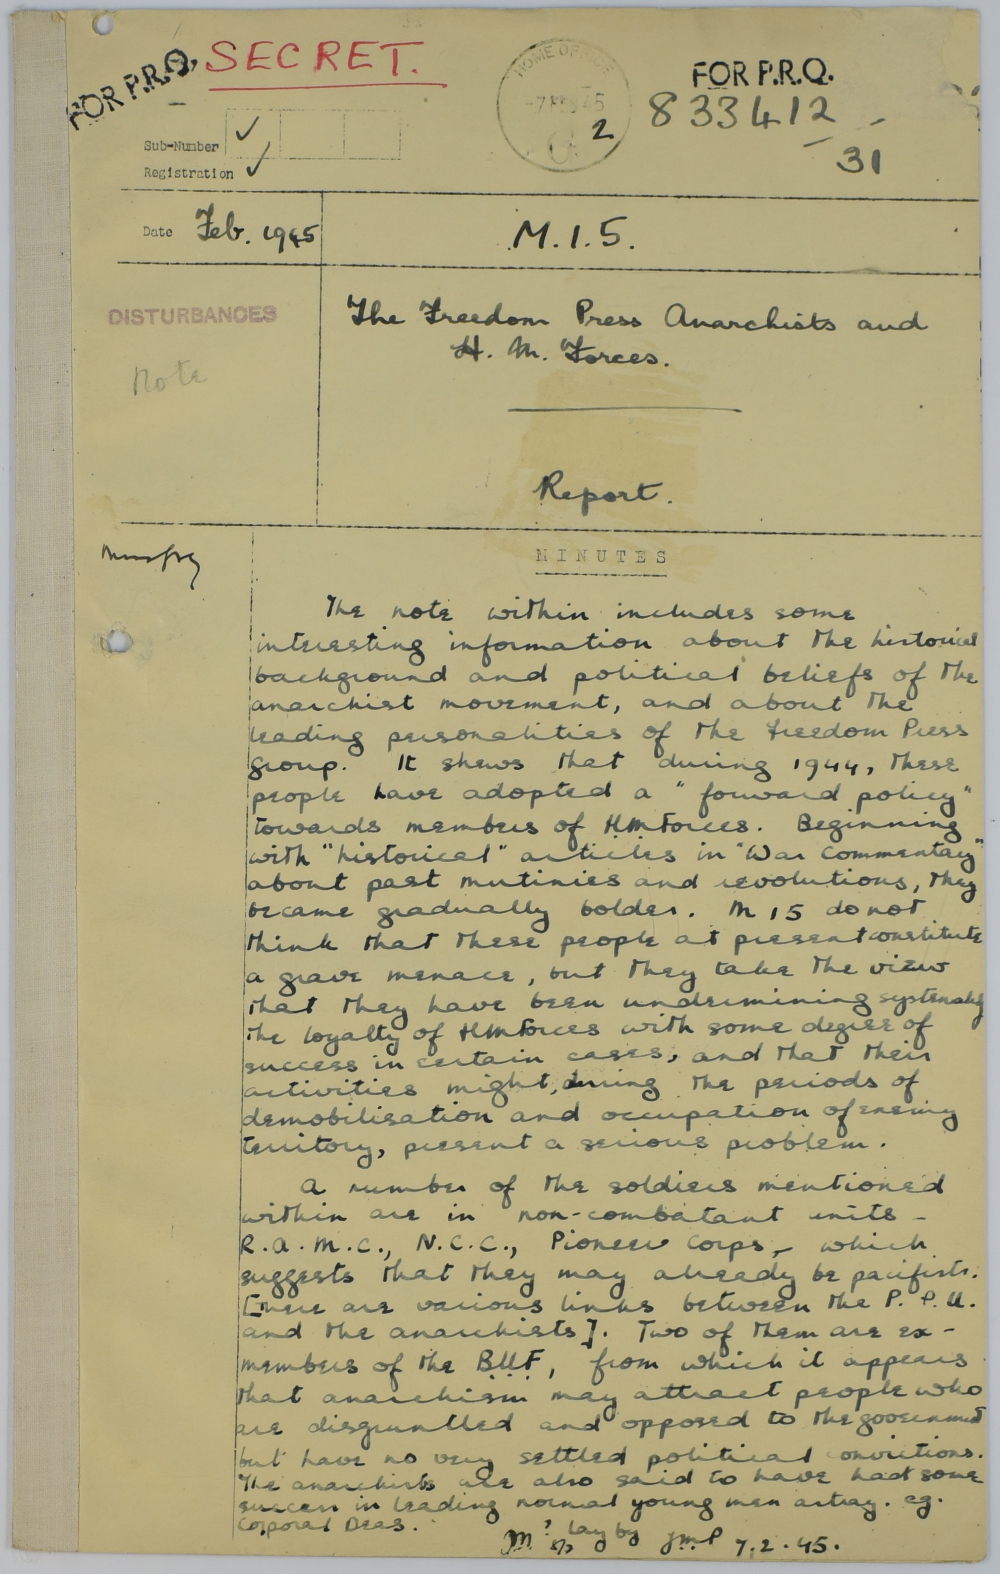 FOR P.R.O.
SECRET.
HOME OFFICE
2
FOR P.R.O.
833412
31
Sub-Number
Registration
Date Feb. 1945
M.I.5.
DISTURBANCES
Note
The Freedom Press Anarchists and
H. M. Forces.
Report.
MINUTES
The note within includes some
interesting information about the historical
background and political beliefs of the
anarchist movement, and about the
leading personalities of the Freedom Press
group. It shews that during 1944, these
people have adopted a "forward policy"
towards members of HM Forces. Beginning
with "historical" articles in "War Commentary"
about past mutinies and revolutions, they
became gradually bolder. M I 5 do not
think that these people at present constitute
a grave menace, but they take the view
that they have been undermining systematically
the loyalty of HM Forces with some degree of
success in certain cases, and that their
activities might, during the periods of
demobilisation and occupation of enemy
territory, present a serious problem.
A number of the soldiers mentioned
within are in non-combatant units -
R.A.M.C., N.C.C., Pioneer Corps, - which
suggests that they may already be pacifists.
[There are various links between the P. P. U.
and the anarchists]. Two of them are ex-
members of the BUF, from which it appears
that anarchism may attract people who
are disgruntled and opposed to the government
but have no very settled political convictions.
The anarchists are also said to have had some
success in leading normal young men astray. eg.
Corporal Deas.
? lay by
7.2.45.